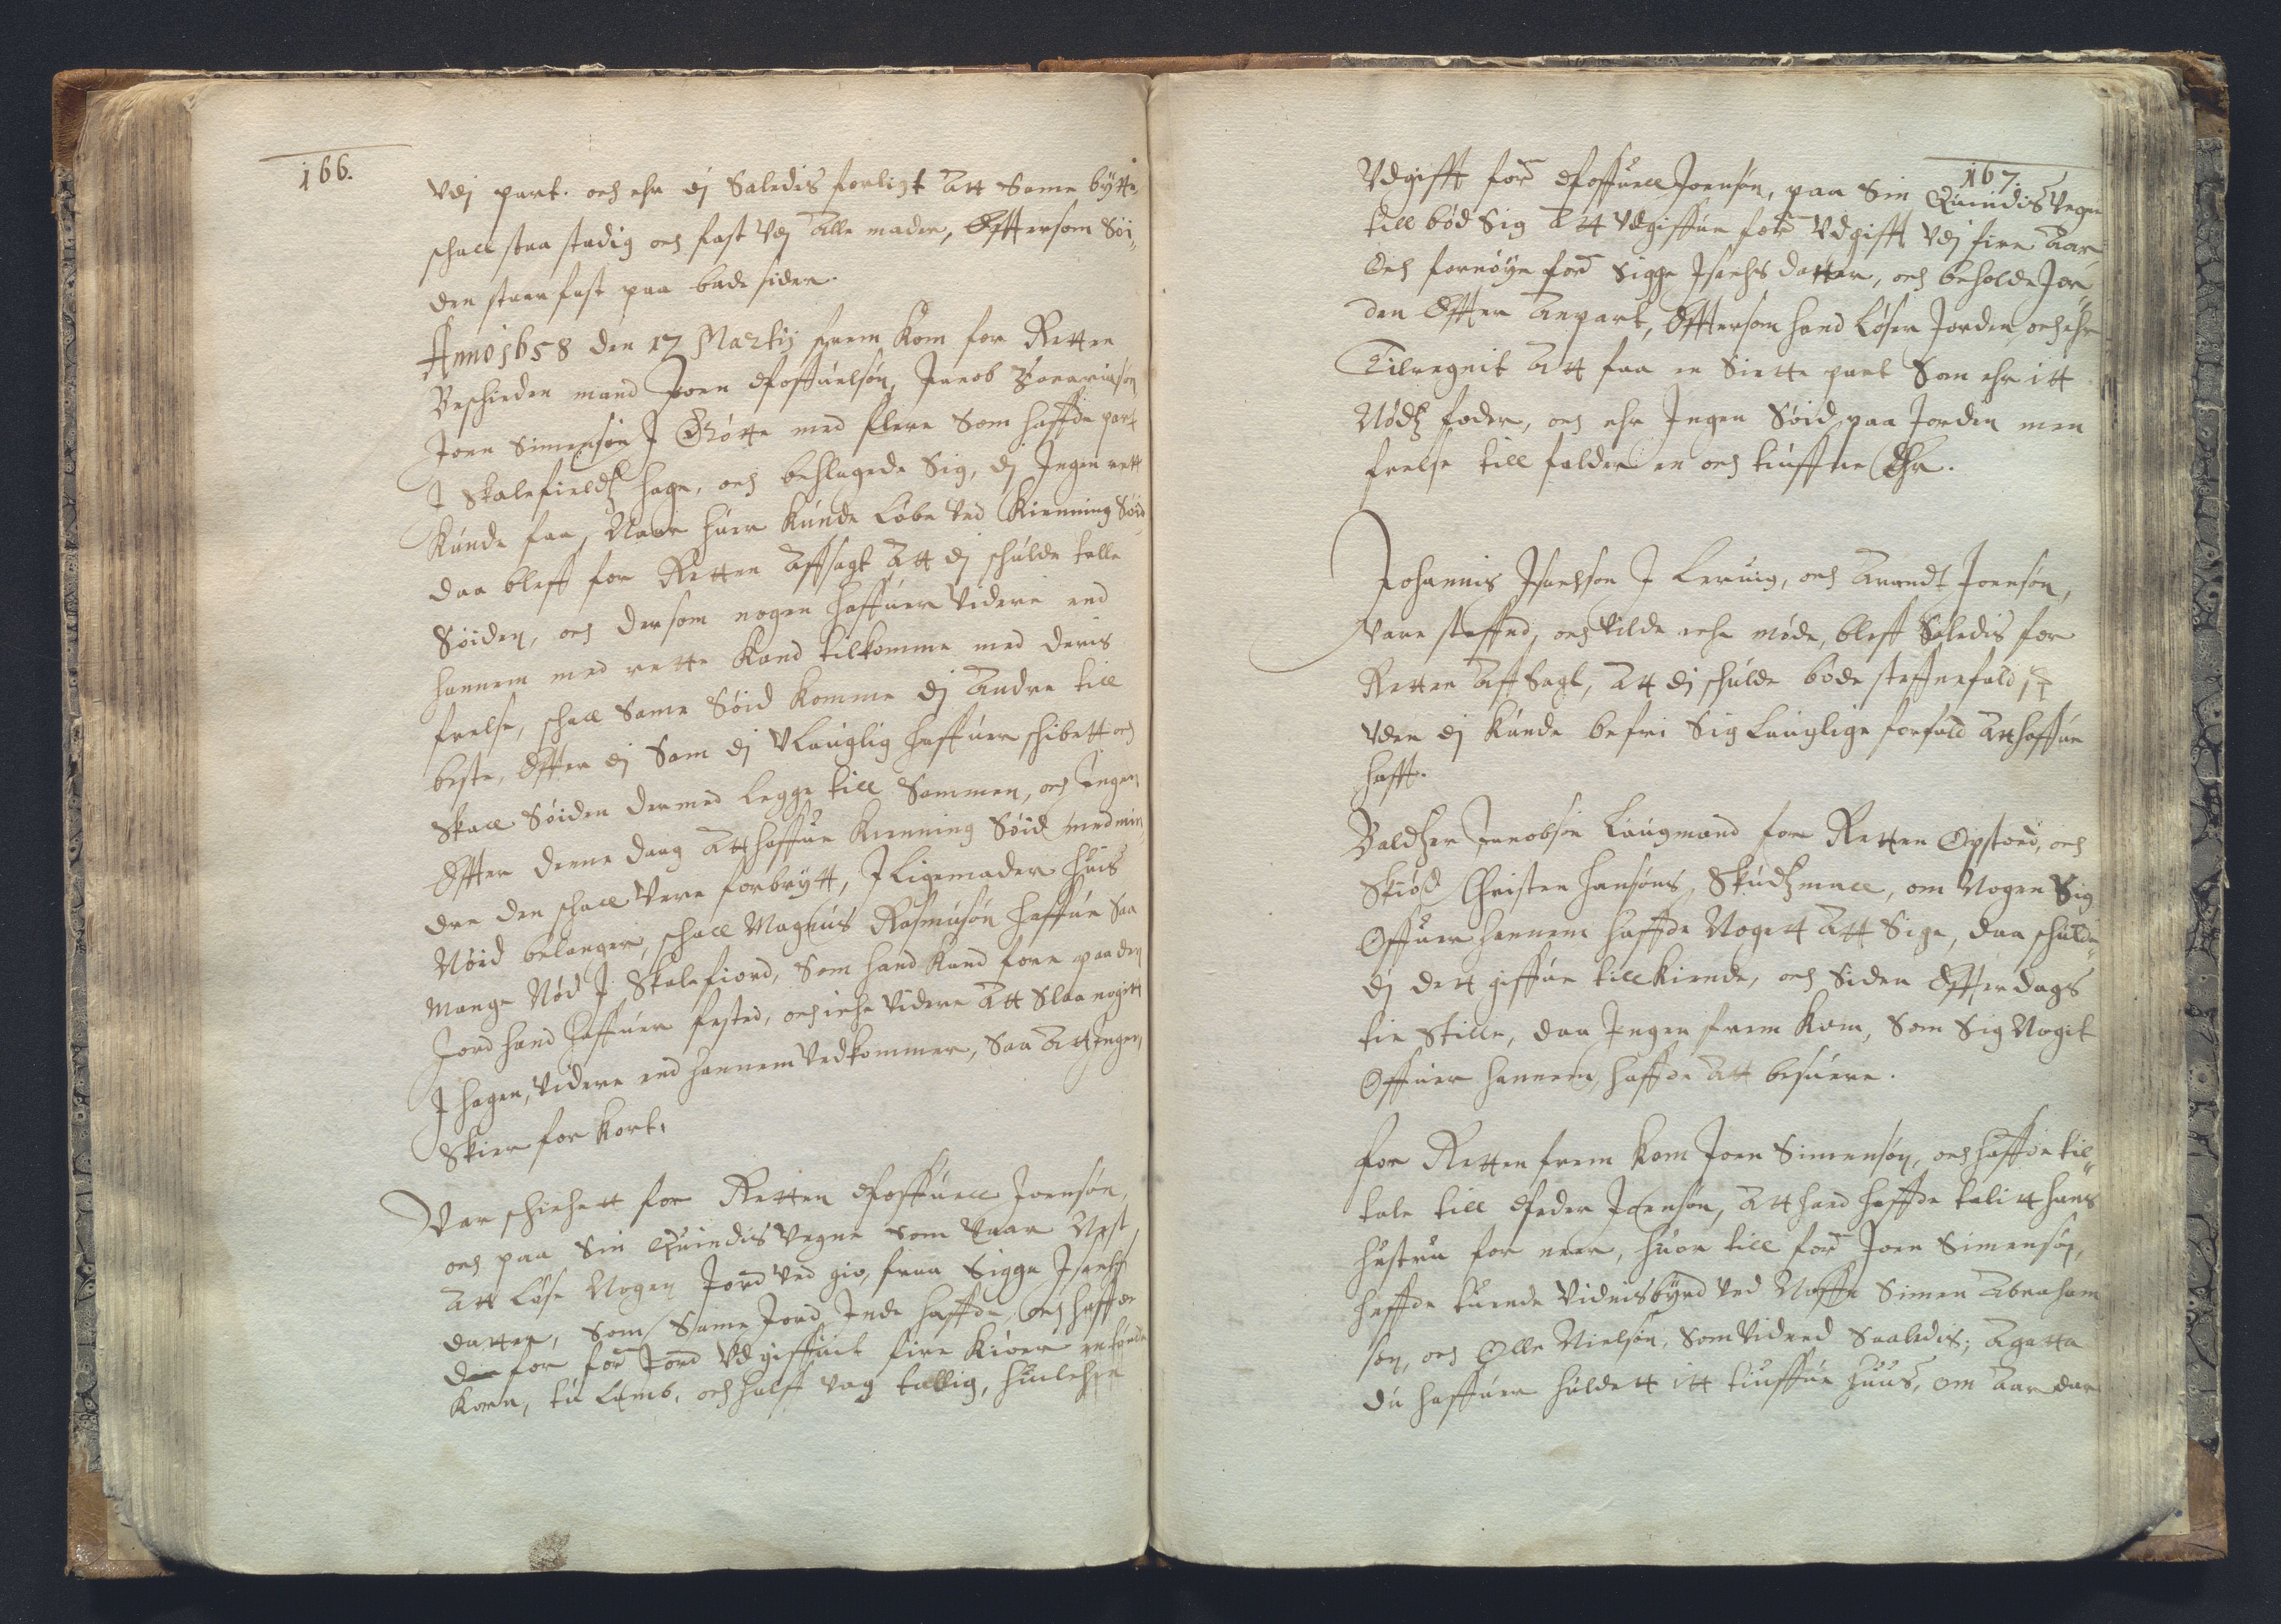 166.
Vdj part. och ehr dj Saledis forligt Att Same bytte
schall staa stadig och fast Vdj Alle mader, Effttersom Söi„
den staar fast paa bade sider.
Anno 1658 den 17 Martij frem kom for Retten
Beschieden mand Joen Poffuelsön, Jacob Zacariason
Joen Simensön J Gøtte med flere Som haffde part
J Skalefieldtz hage, och beklagede Sig, dj Jngen rett
kunde faa, Naar huer kunde Løbe Ved Kienning Söid
daa bleff for Retten Affsagt Att dj schulde talle
Söiden, och dersom nogen haffuer Videre end
hannem med rette kand tilkomme med deris
frelse, schall Same Söid komme dj Andre till
beste, Efter dj Som dj VLauglig haffuer schibett och
Skall Söiden dermed Legge till Sammen, och Jngen
Effter denne daag Att haffue Kienning Söid med min„
dre den schall Vere forbrytt, J Ligemader huis
Nöid belanger, schall Magnus Rasmusön haffue Saa
Mange Nöd J Skalefiord, Som hand kand fore paa den
Jord hand haffuer fested, och iche Videre Att Slaa nogitt
J hagen, Videre end hannem Vedkommer, Saa Att Jngen
Skier for kort.
Var schickett for Retten Poffuell Joensön,
och paa Sin Quindis Vegne Som Vaar Nest
Att Løse Nogen Jord Ved gio, fraa Sigga Jsachs
datter, Som Same Jord Jnde haffde, och haffde
der for ford Jord Vdgiffuit fire Kiöer
Korn, tu Lamb, och halff Vog tallig, huilchen
167.
Vdgifft ford Poffuell Joensön, paa Sin Quindis Vegne
till bød Sig Att Vdgiffue ford Vdgifft Vdj fire Aar
Och fornöye ford Sigge Jsachs datter, och beholde Jor„
den Effter Anpart, Effttersom hand Løser Jorden, och ehr
Tilregnit Att faa en Siette part Som ehr itt
Nödtz foder, och ehr Jngen Söid paa Jorden men
frelse till falder en och tiuffue Ehr.
Johannis Jsaelsön J Leruig, och Arendt Joensön,
Vare steffned, och Vilde iche møde, bleff Saledis for
Retten Aff Sagt, Att dj schulde bøde steffnefald
Vden dj kunde befri Sig Lauglige forfald Att haffue
hafft.
Baldtzer Jacobsön Laugmand for Retten Opstoed, och
Skiød Christen Hansöns Skudtzmall, om Nogen Sig
Offuer hannem haffde Nogett Att Sige, daa schulde
dj dett giffue till kiende, och Siden Effter dags
tie Stille, daa Jngen frem kom, Som Sig Nogit
Offuer hannem haffde Att besuere.
for Retten frem kom Joen Simensön, och haffde til„
tale till Peder Joensön, Att hand haffde talitt hans
hustru for neer, huor till ford Joen Simensön,
haffde tuende Vidnisbyrd Ved Naffn Simen Abraham
sön, och Olle Nielsön, Som Vidned Saaledis; Agatta
du haffuer huldett itt tiuffue huus, om Aar dar